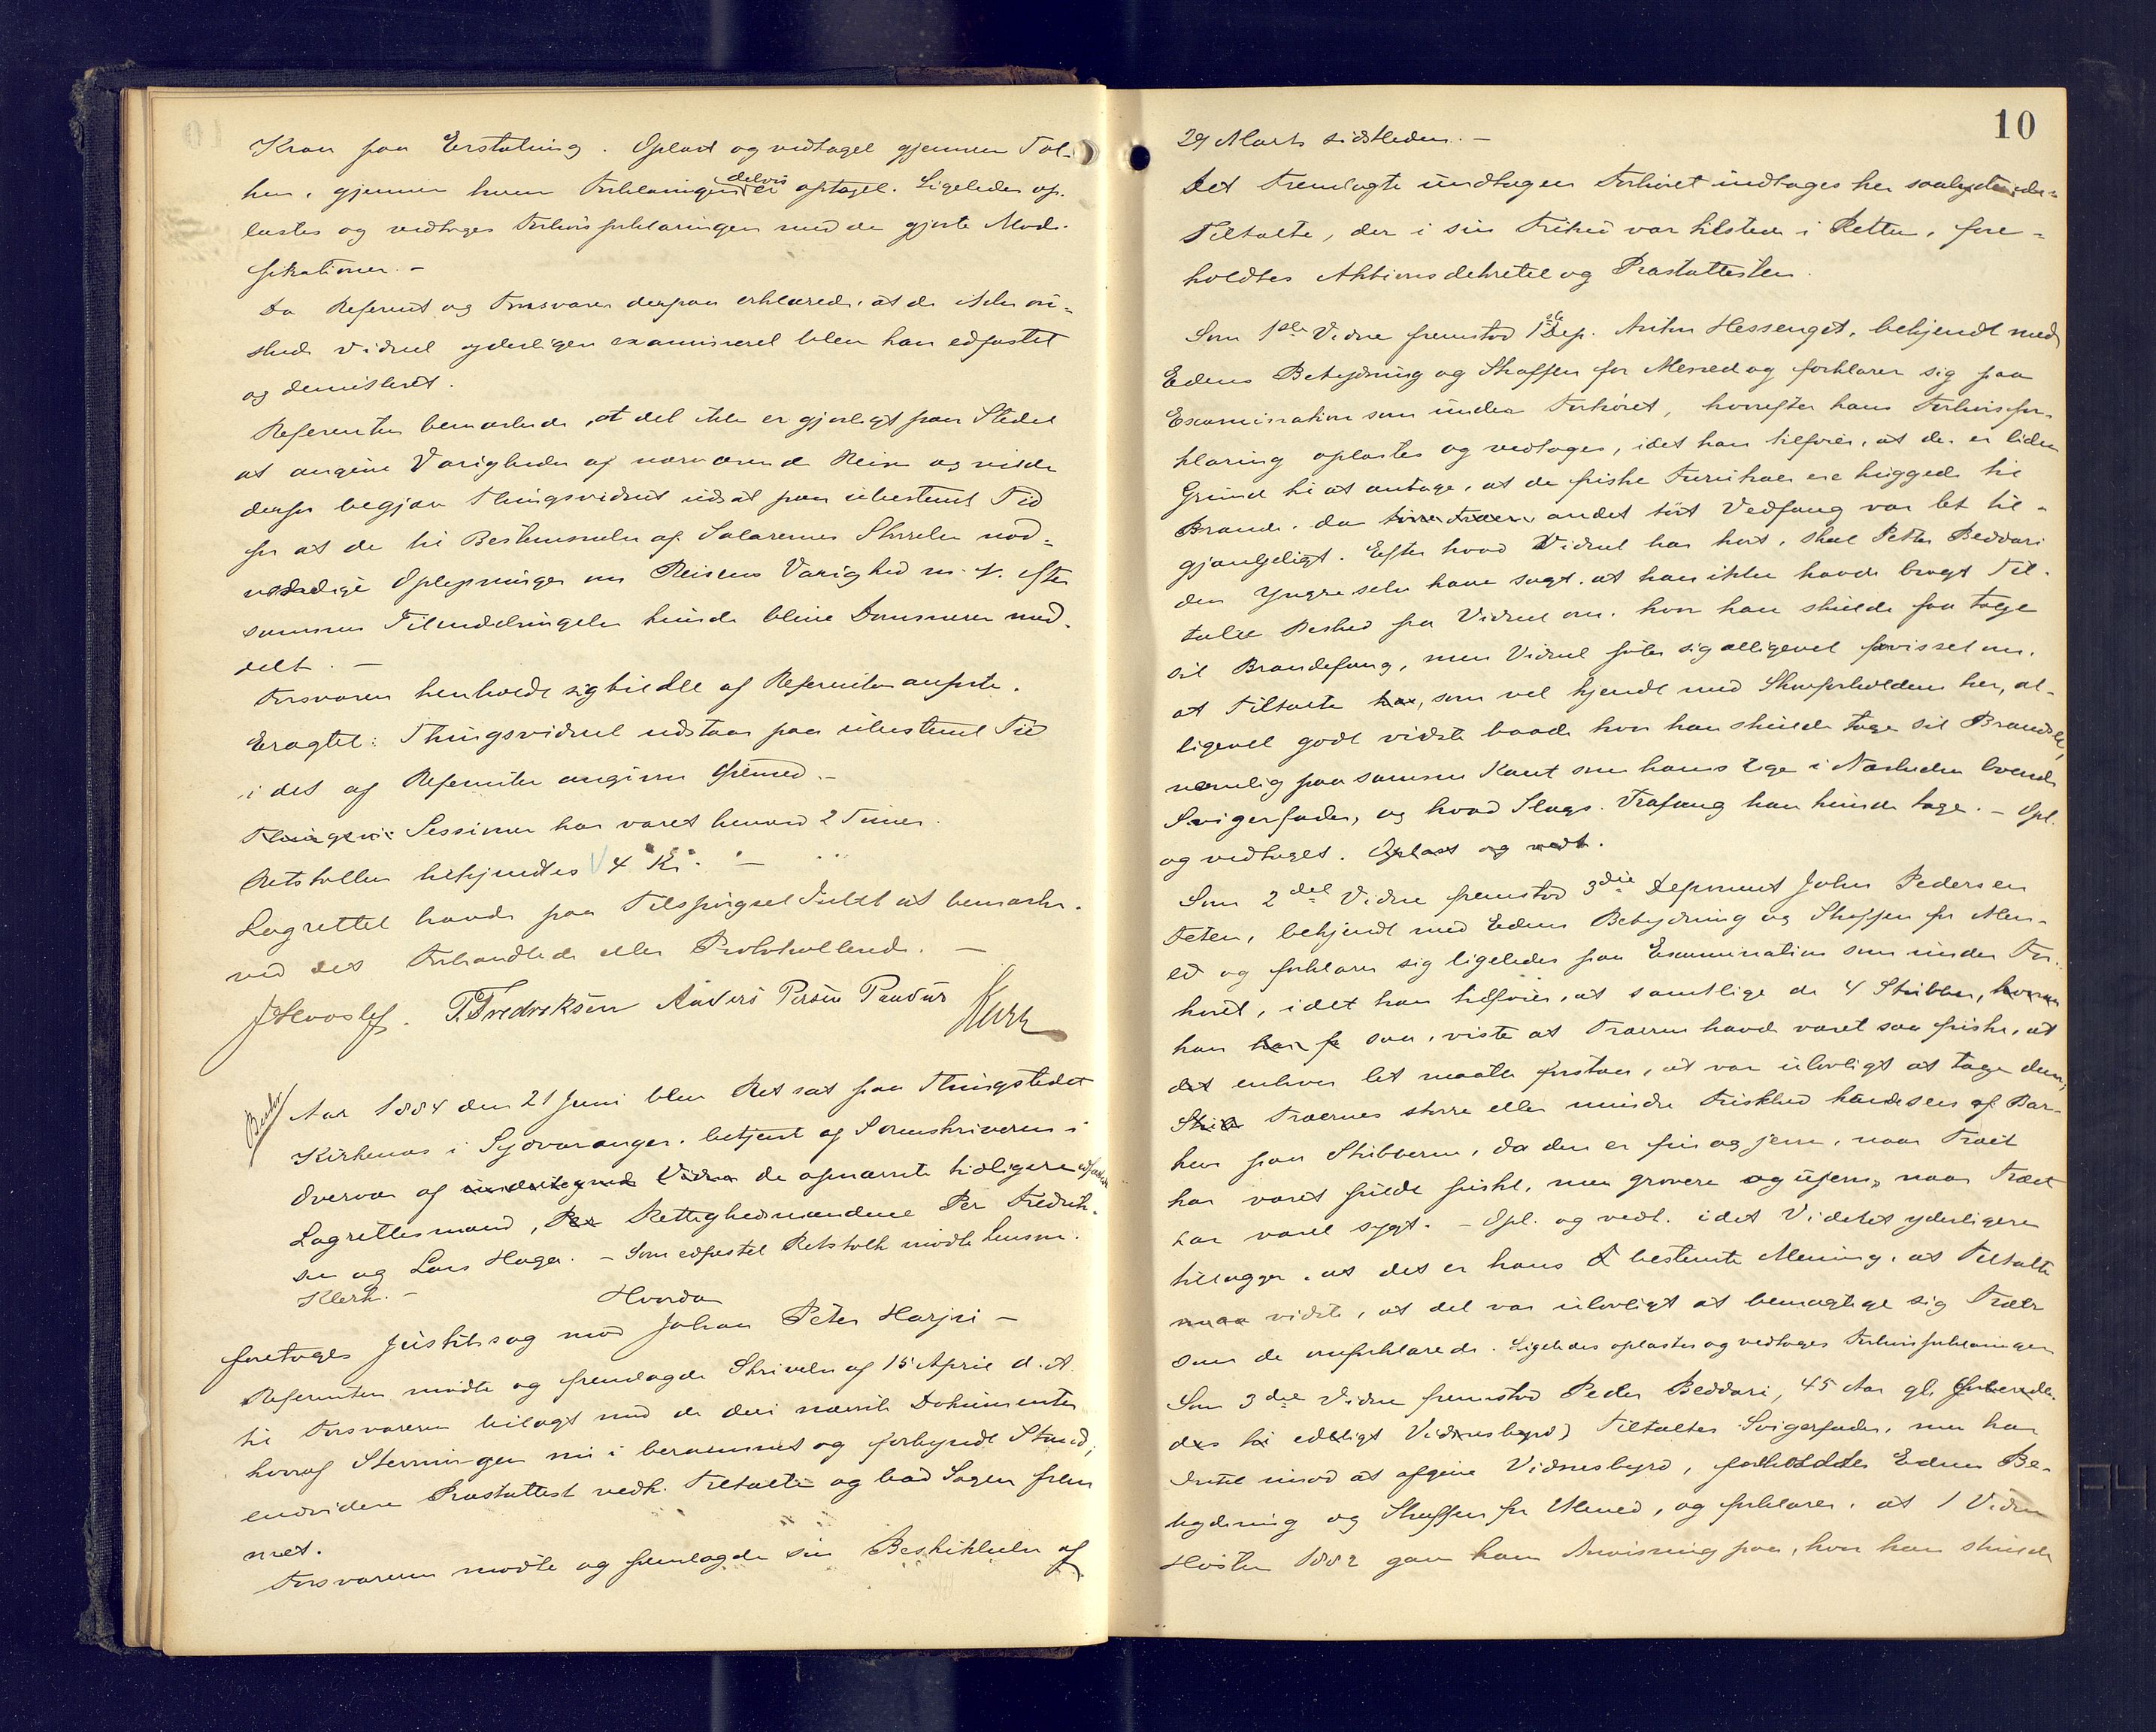 Krav paa Erstatning. Oplæst og vedtaget gjennem Tol-
ken, gjennem hvem Forklaringen delvis er optaget. Ligeledes op-
læstes og vedtoges Forhørsforklaringen med de gjorte Modi-
fikationer. -
Da Referent og Forsvarer derpaa erklærede, at de ikke øn-
skede Vidnet yderligere examineret blev han edfæstet
og demitteret.
Referenten bemærkede, at det ikke er gjørligt paa Stedet
at angive Varigheden af nærværende Reise og vilde
derfor begjære Thingsvidnet udsat paa ubestemt Tid
for at de til Bestemmelse af Salærernes Størrelse nød-
vendige Oplysninger om Reisens Varighed m. v. efter
sammes Tilendebringelse kunde blive Dommeren med-
delt. -
Forsvareren henholdt sig til det af Referenten anførte.
Eragtet: Thingsvidnet udstaar paa ubestemt Tid
i det af Referenten angivne Øiemed. -
Thingsvi Sessionen har varet henved 2 Timer.
Retsfolken tilkjendtes 4 Kr. -
Lagrettet havde paa Tilspørgsel Intet at bemærke
ved det Forhandlede eller Protokollerede. -
J Hooslef. P. Fredriksen Anders Persen Pandur Klerk
Aar 1884 den 21 Juni blev Ret sat paa Thingstedet
Kirkenæs i Sydvaranger, betjent af Sorenskriveren i
Overvær af undertegnede Vidne de opnævnte tidligere edfæstede
Lagrettesmænd, Per Rettighedsmændene Per Fredrik-
sen og Lars Haga. - Som edfæstet Retsfolk mødte Lensm.
Klerk. -
Hvorda
foretoges Justitssag mod Johan Peter Harjri -
Referenten mødte og fremlagde Skrivelse af 15 April d. A.
til Forsvareren bilagt med de deri nævnte Dokumenter
hvoraf Stevningen nu i berammet og forkyndt Stand;
endvidere Præstattest vedk. Tiltalte og bad Sagen frem-
met.
Forsvareren mødte og fremlagde sin Beskikkelse af
10
29 Marts sidstleden. -
Det Fremlagte undtagen Forhøret indtages her saalydende -
Tiltalte, der i sin Frihed var tilstede i Retten, fore-
holdtes Aktionsdekretet og Præstattesten.
Som 1ste Vidne fremstod 1ste Dep. Anton Hessenget, bekjendt med
Edens Betydning og Straffen for Mened og forklarer sig paa
Examination som under Forhøret, hvorefter hans Forhørsfor-
klaring oplæstes og vedtoges, idet han tilføier, at der er liden
Grund til at antage, at de friske Furutræer ere huggede til
Brande, da tørre Træer andet tørt Vedfang var let til-
gjængeligt. Efter hvad Vidnet har hørt, skal Peter Beddari
den Yngre selv have sagt, at han ikke havde bragt Til-
talte Besked fra Vidnet om, hvor han skulde faa tage
sit Brandefang, men Vidnet føler sig alligevel forvisset om,
at Tiltalte har, som vel kjendt med Skovforholdene her, al-
ligevel godt vidste baade hvor han skulde tage sit Brandsel,
nemlig paa samme Kant som hans lige i Nærheden boende
Svigerfader, og hvad Slags Træfang han kunde tage. - Opl.
og vedtaget. Oplæst og vedt.
Som 2det Vidne fremstod 3die Deponent John Pedersen
Feten, bekjendt med Edens Betydning og Straffen for Men-
ed og forklarer sig ligeledes paa Examination som under For-
høret, idet han tilføier, at samtlige de 4 Stubber, hvoraf
han har fr saa, viste at Træerne havde været saa friske, at
det enhver let maatte forstaa, at var ulovligt at tage dem;
Stub Træernes større eller mindre Friskhed kjendes af Bar-
ken paa Stubberne, da den er fin og jevn, naar Træet
har været fuldt friskt, men grovere og ujevn, naar Træet
har været sygt. - Opl. og vedt. idet Vidnet yderligere
tillægger, at det er hans bestemte Mening, at Tiltalte
maa vidste, at det var ulovligt at bemægtige sig Træer
som de omforklarede. Ligeledes oplæstes og vedtoges Forhørsforklaringen
Som 3die Vidne fremstod Peder Beddari, 45 Aar gl. (forberede-
des til edeligt Vidnesbyrd) Tiltaltes Svigerfader, men har
Intet imod at afgive Vidnesbyrd, foreholdtes Edens Be-
tydning og Straffen for Mened, og forklarer, at 1 Vidne
Høsten 1882 gav ham Anvisning paa, hvor han skulde